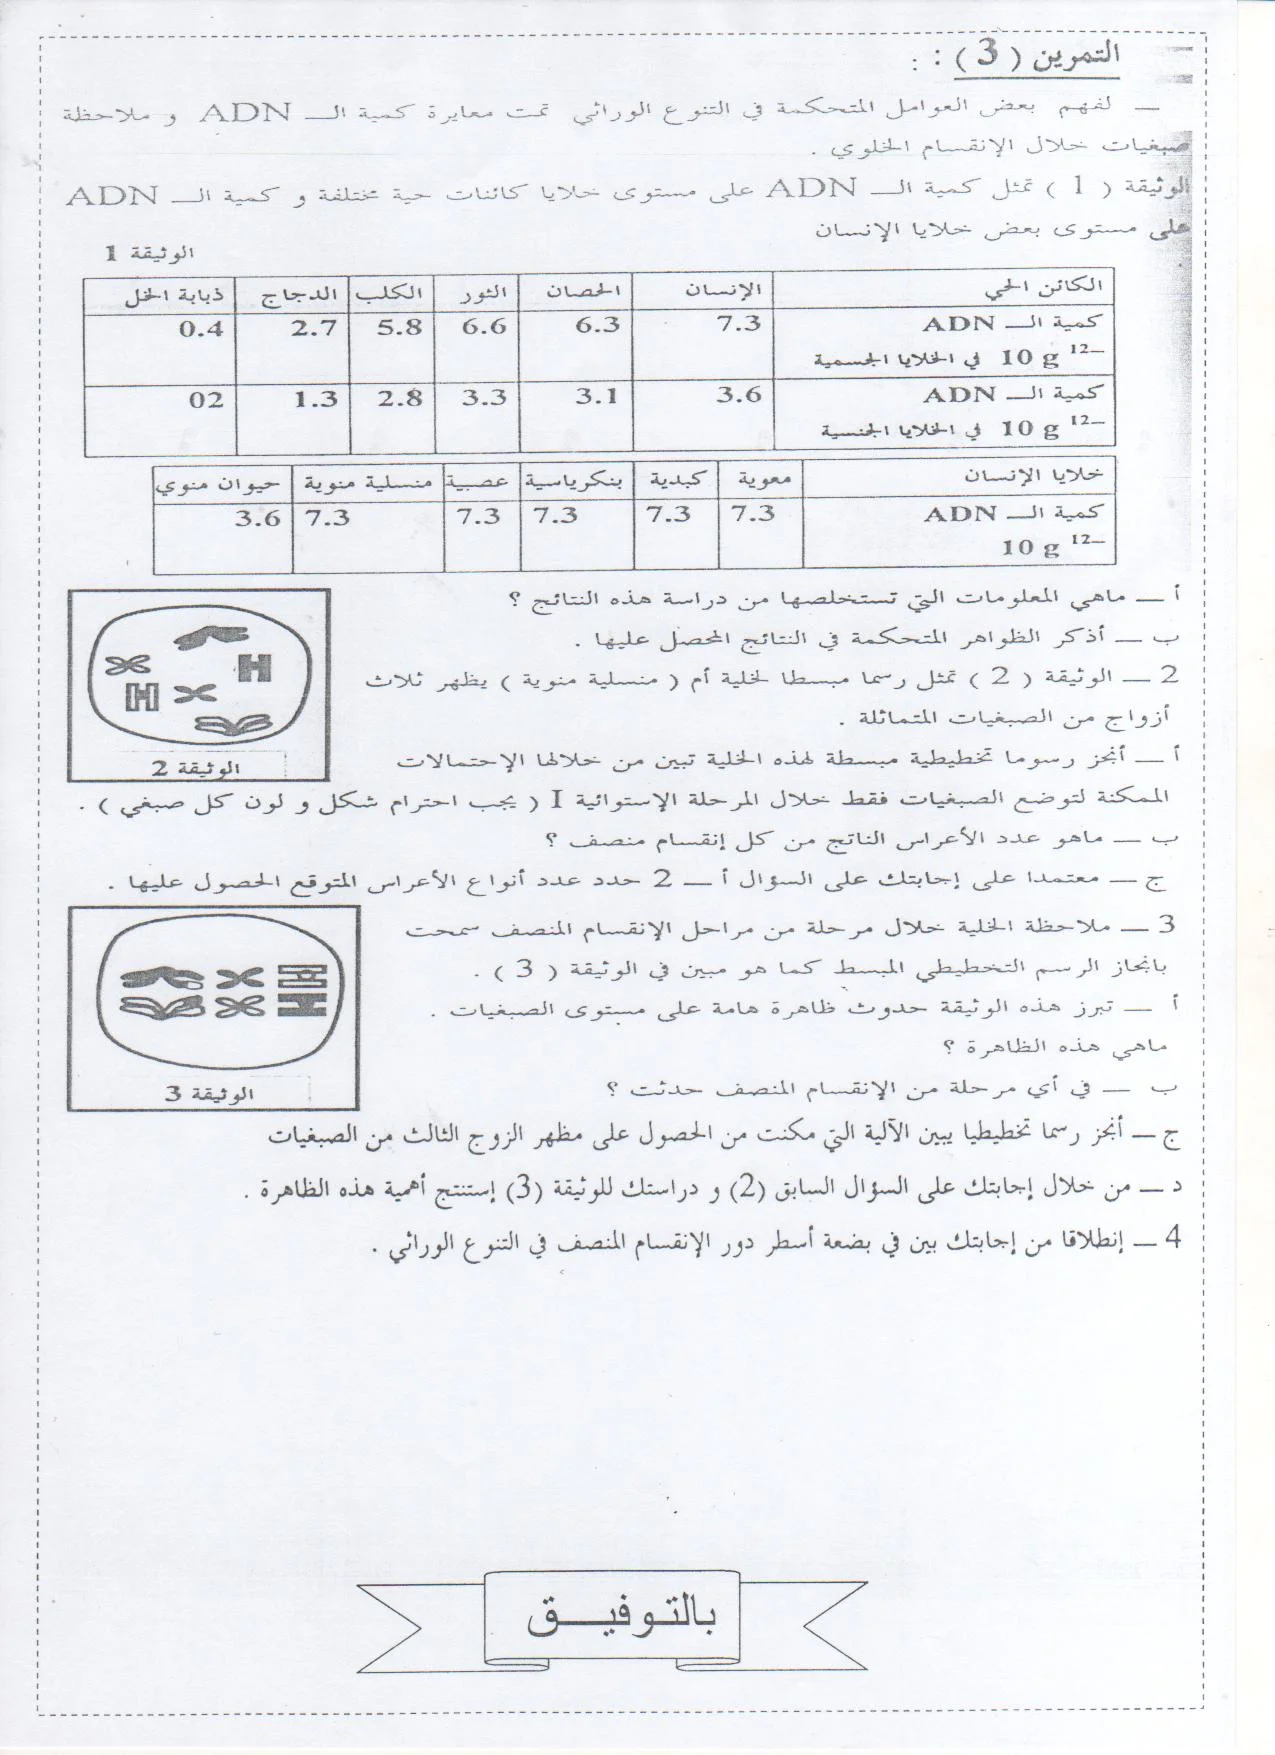 التمرين ( 3 ) : :
ــ لفهم بعض العوامل المتحكمة في التنوع الوراثي تمت معايرة كمية الــ ADN و ملاحظة
صبغيات خلال الإنقسام الخلوي .
الوثيقة ( 1 ) تمثل كمية الــ ADN على مستوى خلايا كائنات حية مختلفة و كمية الــ ADN
على مستوى بعض خلايا الإنسان
الوثيقة 1
الكائن الحي الإنسان الحصان الثور الكلب الدجاج ذبابة الخل
كمية الــ ADN 7.3 6.3 6.6 5.8 2.7 0.4
10 g ¹²⁻ في الخلايا الجسمية
كمية الــ ADN 3.6 3.1 3.3 2.8 1.3 02
10 g ¹²⁻ في الخلايا الجنسية
خلايا الإنسان معوية كبدية بنكرياسية عصبية منسلية منوية حيوان منوي
كمية الــ ADN 7.3 7.3 7.3 7.3 7.3 3.6
10 g ¹²⁻
أ ــ ماهي المعلومات التي تستخلصها من دراسة هذه النتائج ؟
ب ــ أذكر الظواهر المتحكمة في النتائج المحصل عليها .
2 ــ الوثيقة ( 2 ) تمثل رسما مبسطا لخلية أم ( منسلية منوية ) يظهر ثلاث
أزواج من الصبغيات المتماثلة .
الوثيقة 2
أ ــ أنجز رسوما تخطيطية مبسطة لهذه الخلية تبين من خلالها الإحتمالات
الممكنة لتوضع الصبغيات فقط خلال المرحلة الإستوائية I ( يجب احترام شكل و لون كل صبغي ) .
ب ــ ماهو عدد الأعراس الناتج من كل إنقسام منصف ؟
ج ــ معتمدا على إجابتك على السؤال أ ــ 2 حدد عدد أنواع الأعراس المتوقع الحصول عليها .
3 ــ ملاحظة الخلية خلال مرحلة من مراحل الإنقسام المنصف سمحت
بانجاز الرسم التخطيطي المبسط كما هو مبين في الوثيقة ( 3 ) .
أ ــ تبرز هذه الوثيقة حدوث ظاهرة هامة على مستوى الصبغيات .
ماهي هذه الظاهرة ؟
ب ــ في أي مرحلة من الإنقسام المنصف حدثت ؟
الوثيقة 3
ج ــ أنجز رسما تخطيطيا يبين الآلية التي مكنت من الحصول على مظهر الزوج الثالث من الصبغيات
د ــ من خلال إجابتك على السؤال السابق (2) و دراستك للوثيقة (3) إستنتج أهمية هذه الظاهرة .
4 ــ إنطلاقا من إجابتك بين في بضعة أسطر دور الإنقسام المنصف في التنوع الوراثي .
بالتوفيــــق